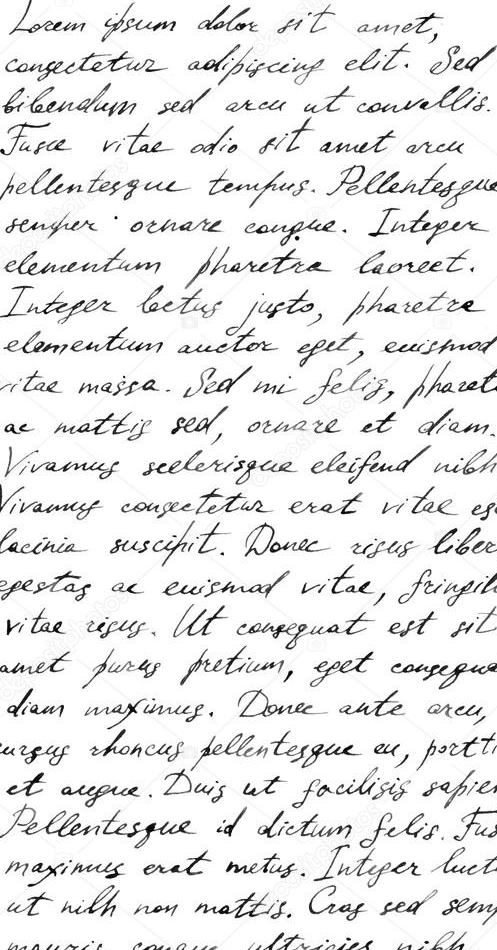 Lorem ipsum dolor sit amet,
consectetur adipiscing elit. Sed
bibendum sed arcu ut convallis.
Fusce vitae odio sit amet arcu
pellentesque tempus. Pellentesque
semper ornare congue. Integer
elementum pharetra laoreet.
Integer lectus justo, pharetra
elementum auctor eget, euismod
vitae massa. Sed mi felis, pharet
ac mattis sed, ornare et diam.
Vivamus scelerisque eleifend nibh
Vivamus consectetur erat vitae es
lacinia suscipit. Donec risus liber
egestas ac euismod vitae, fringil
vitae risus. Ut consequat est sit
amet purus pretium, eget consequa
diam maximus. Donec ante arcu,
ursus rhoncus pellentesque eu, portti
et augue. Duis ut facilisis sapien
Pellentesque id dictum felis. Fus
maximus erat metus. Integer luct
ut nibh non mattis. Cras sed semp
mauris congue ultricies nibh